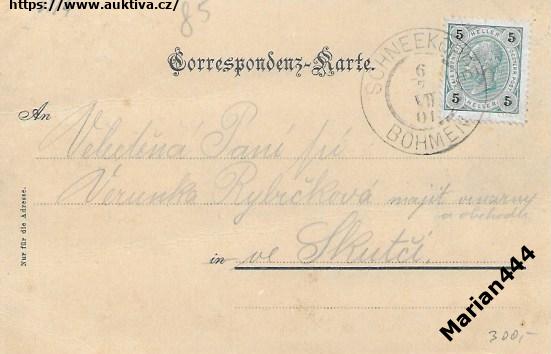 https://www.auktiva.cz/
85
Correspondenz-Karte.
SCHNEEKOPPE
6
VII
01
BÖHMEN
5 HELLER 5
5 HELLER 5
An
Velectěna Paní pí
Verunka Rybičková majit
a obchodu
in ve Skutči.
Nur für die Adresse.
Marian444
300,-